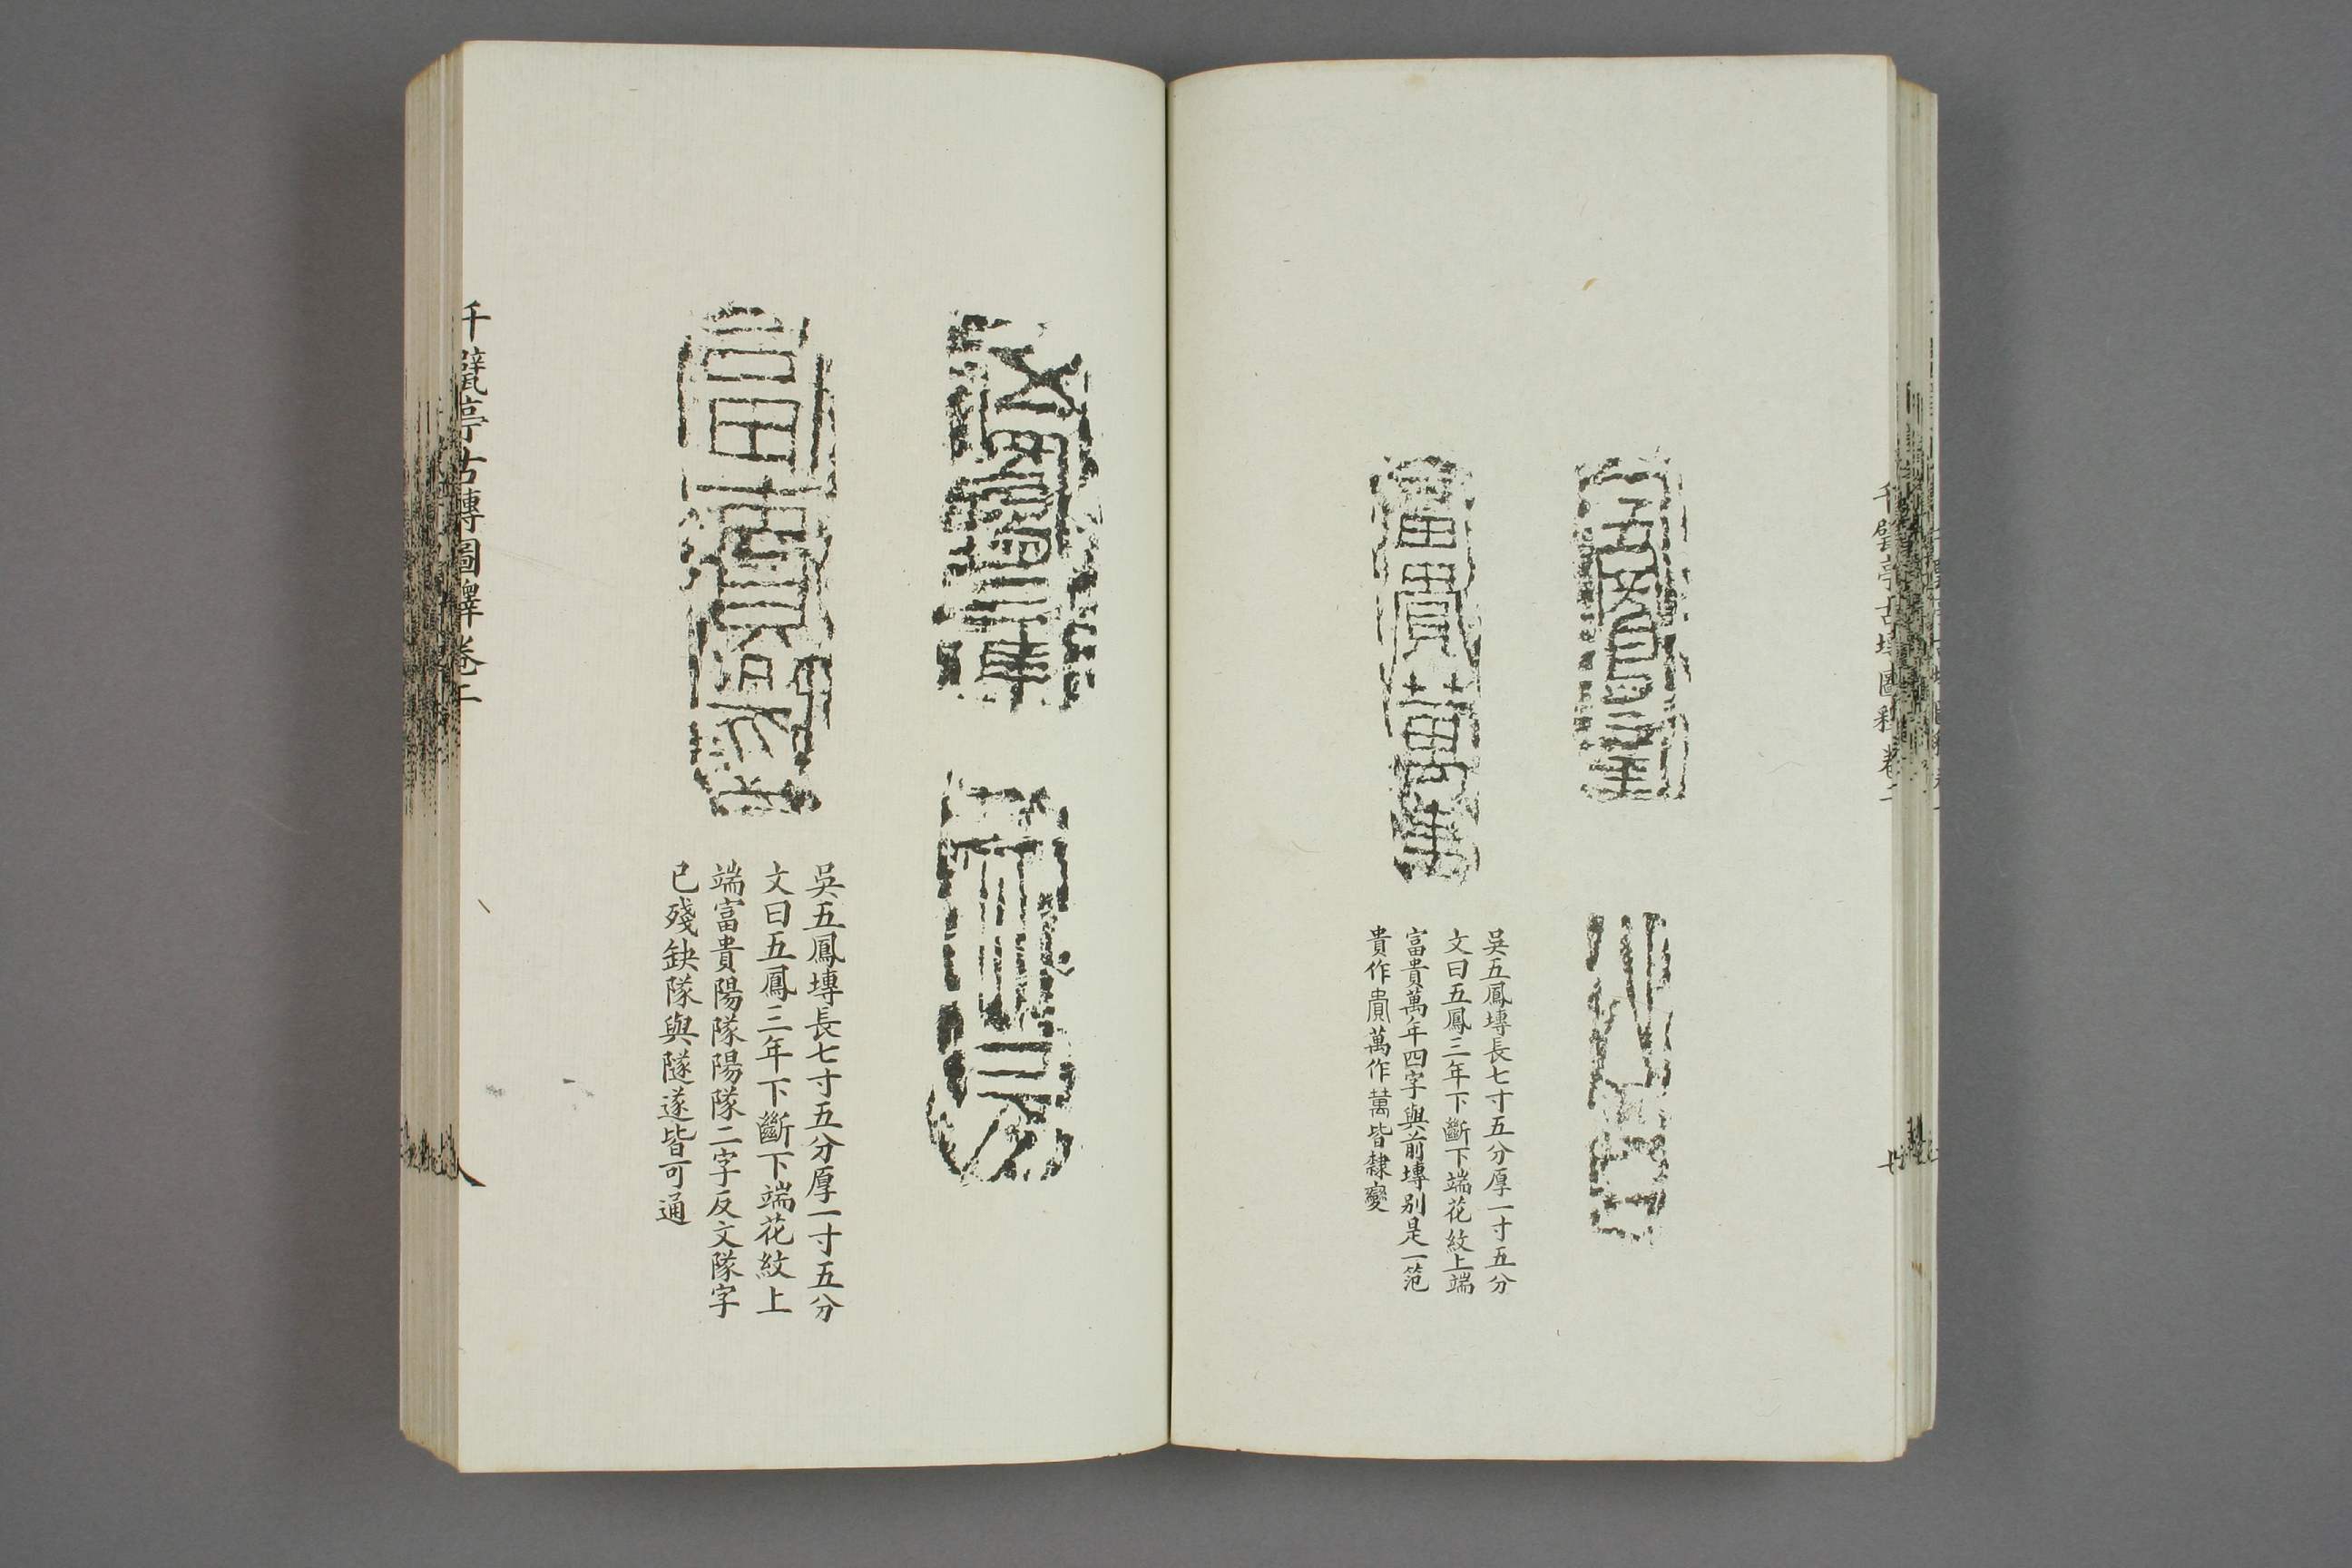 千甓亭古塼圖釋卷二
七
五鳳三年
富貴萬年
吳五鳳塼長七寸五分厚一寸五分
文曰五鳳三年下斷下端花紋上端
富貴萬年四字與前塼别是一笵
貴作貴萬作萬皆隸變
五鳳三年
富貴陽隊
吳五鳳塼長七寸五分厚一寸五分
文曰五鳳三年下斷下端花紋上
端富貴陽隊陽隊二字反文隊字
已殘缺隊與隧遂皆可通
千甓亭古塼圖釋卷二
八